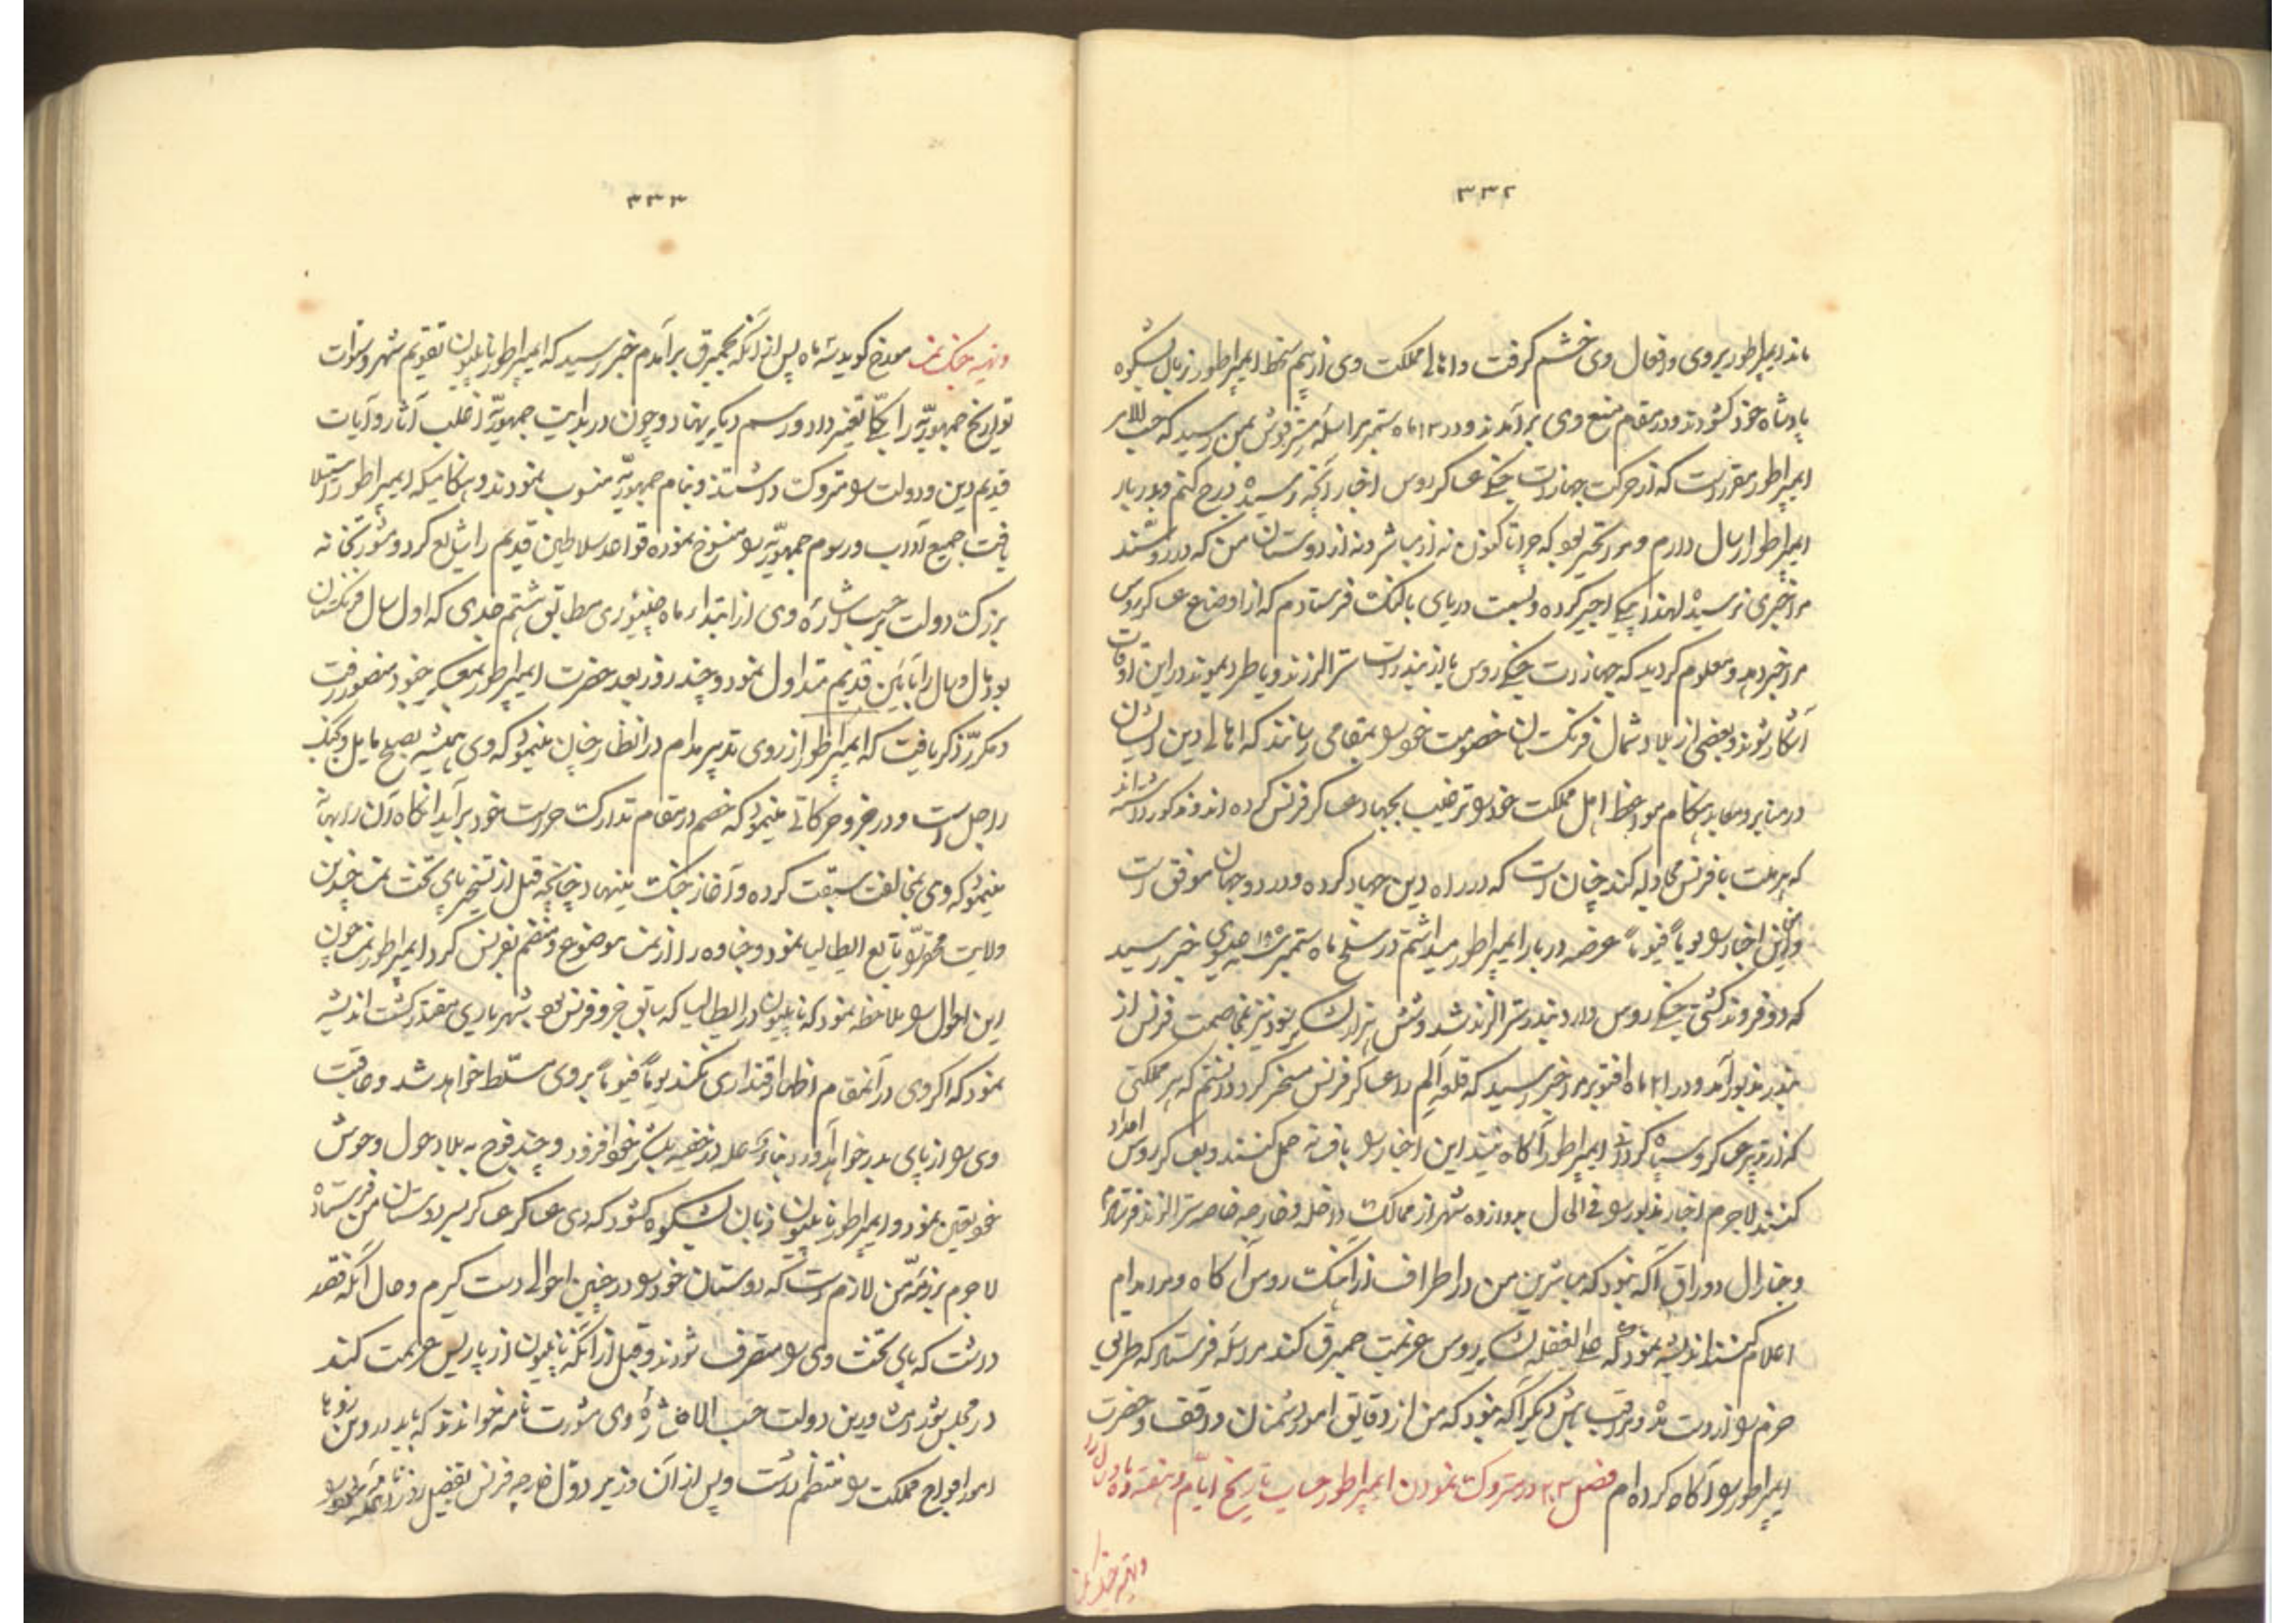 ۳۳۲
ماند ایمپراطور بروی و افعال وی خشم گرفت و اهالی مملکت وی از بیم سخط ایمپراطور زبان بشکوه
پادشاه خود گشودند و در مقام منع وی برآمدند و در ۱۳ ماه ستمبر مراسله بمن رسید که حسب الامر
ایمپراطور مقرر است که از حرکت جهازات جنگی عساکر روس اخبار آنچه رسیده درج کنم و بدربار
ایمپراطور ارسال دارم و مرا تحیر بود که چرا تاکنون نه از مباشر و نه از دوستان من که در
مرا خبری نرسیده لهذا یکی اجیر کرده و بسمت دریای بالتک فرستادم که از اوضاع عساکر روس
مرا خبر دهد و معلوم گردید که جهازات جنگی روس باید ببندرات سترالزند و یا در این اوقات
آشکار شوند و بعضی از بلاد شمال فرنگستان خصومت خود را بمقامی رسانند که اهالی دین ایشان
در منابر و معابد هنگام موعظه اهل مملکت خود را ترغیب بجهاد عساکر فرنس کرده اند و مذکور داشته اند
که هر ملت با فرنس مجادله کند چنان است که در راه دین جهاد کرده و در دو جهان موفق است
و من این اخبار را یوماً فیوماً عرضه دربار ایمپراطور میداشتم در سلخ ماه ستمبر سنه ۱۸۰۵ عیسوی خبر رسید
که دو فروند کشتی جنگی روس وارد بندر سترالزند شد و شش هزار لشکر بود نیز بمخاصمت فرنس از
بندر مذبور آمد و در ۲۱ ماه اقتوبر مرا خبر رسید که قلعه الم را عساکر فرنس مسخر کرد دانستم که هر مملکتی
که از تدبیر عسکر و سپاه کردانی ایمپراطور آگاه نیند این اخبار را بافسانه حمل کنند و بعساکر روس امداد
کنند لاجرم اخبار مذبور را فی الحال بدوازده شهر از ممالک داخله و خارجه خاصه سترالزند فرستادم
و جنارال دوراق آگه نبود که مباشرین من در اطراف از آهنگ روس آگاه و مرا مدام
اعلام کنند اندیشه نموده که علی الغفله لشکر روس عزیمت حمبرق کند مراسله فرستاد که طرایق
حزم را از دست مده و مراقب باش دیگر آگه نبود که من از دقایق امور دشمنان واقف و حضرت
ایمپراطور را آگاه کرده ام فصل ۲۰۳ در متروک نمودن ایمپراطور حساب تاریخ ایام و هفته و ماه و سال را
و تهیه جنگ نمسه
۳۳۳
و تهیه جنگ نمسه مورخ گوید سه ماه پس از آنکه بحمبرق برآمدم خبر رسید که ایمپراطور ناپلیون تقویم شهور و سنوات
تواریخ جمهوریّه را بکلی تغییر داد و رسم دیگر نهاد و چون در بدایت جمهوریّه اغلب آثار و آیات
قدیم دین و دولت را متروک داشتند و بنام جمهوریّه منسوب نمودند و هنگامیکه ایمپراطور استیلا
یافت جمیع آداب و رسوم جمهوریّه را منسوخ نموده قواعد سلاطین قدیم را شایع کرد و مشورتخانه
بزرگ دولت برحسب اشاره وی از ابتدای ماه جنیوری مطابق هشتم جدی که اول سال فرنگستان
بود ماه و سال را بآئین قدیم متداول نمود و چند روز بعد حضرت ایمپراطور بمعسکر خود منصور رفت
و مکرّر ذکر یافت که ایمپراطور از روی تدبیر مدام در انظار چنان مینمود که وی همیشه بصلح مایل و جنگ
را جاهل است و در جزو حرکاتی مینمود که خصم در مقام تدارک حراست خود برآید آنگاه آن را بهانه
مینمود که وی بمخالفت سبقت کرده و آغاز جنگ مینهاد چنانچه قبل از تسخیر پای تخت نمسه چندین
ولایت محقر را تابع ایطالیا نمود و جنوه را از نمسه موضوع و منضم بفرنس کرد ایمپراطور نمسه چون
این احوال را ملاحظه نمود که ناپلیون در ایطالیا که سابق جزو فرنس بود بشهریاری مقتدر گشت اندیشه
نمود که اگر وی در آنمقام اظهار اقتداری نکند یوماً فیوماً بروی مسلّط خواهد شد و عاقبت
وی را از پای بدر خواهد آورد بناءً علیه در خفیه بلشکر خود افزود و چند فوج به بلاد حول و حوش
خود تعیین نمود و ایمپراطور ناپلیون زبان بشکوه گشود که وی عساکر بر سر دوستان من فرستاده
لاجرم بر ذمّه من لازم است که دوستان خود را در چنین احوالی دست گیرم و حال آنکه قصد
داشت که پای تخت وی را متصرف شود و قبل از آنکه ناپلیون از پاریس عزیمت کند
در مجلس شورا مشاورین دولت حسب الاشاره وی مشورت نامه خواندند که باید در این روزها
امور افواج مملکت را منتظم داشت و پس از آن وزیر دول خارجه فرنس تفصیل